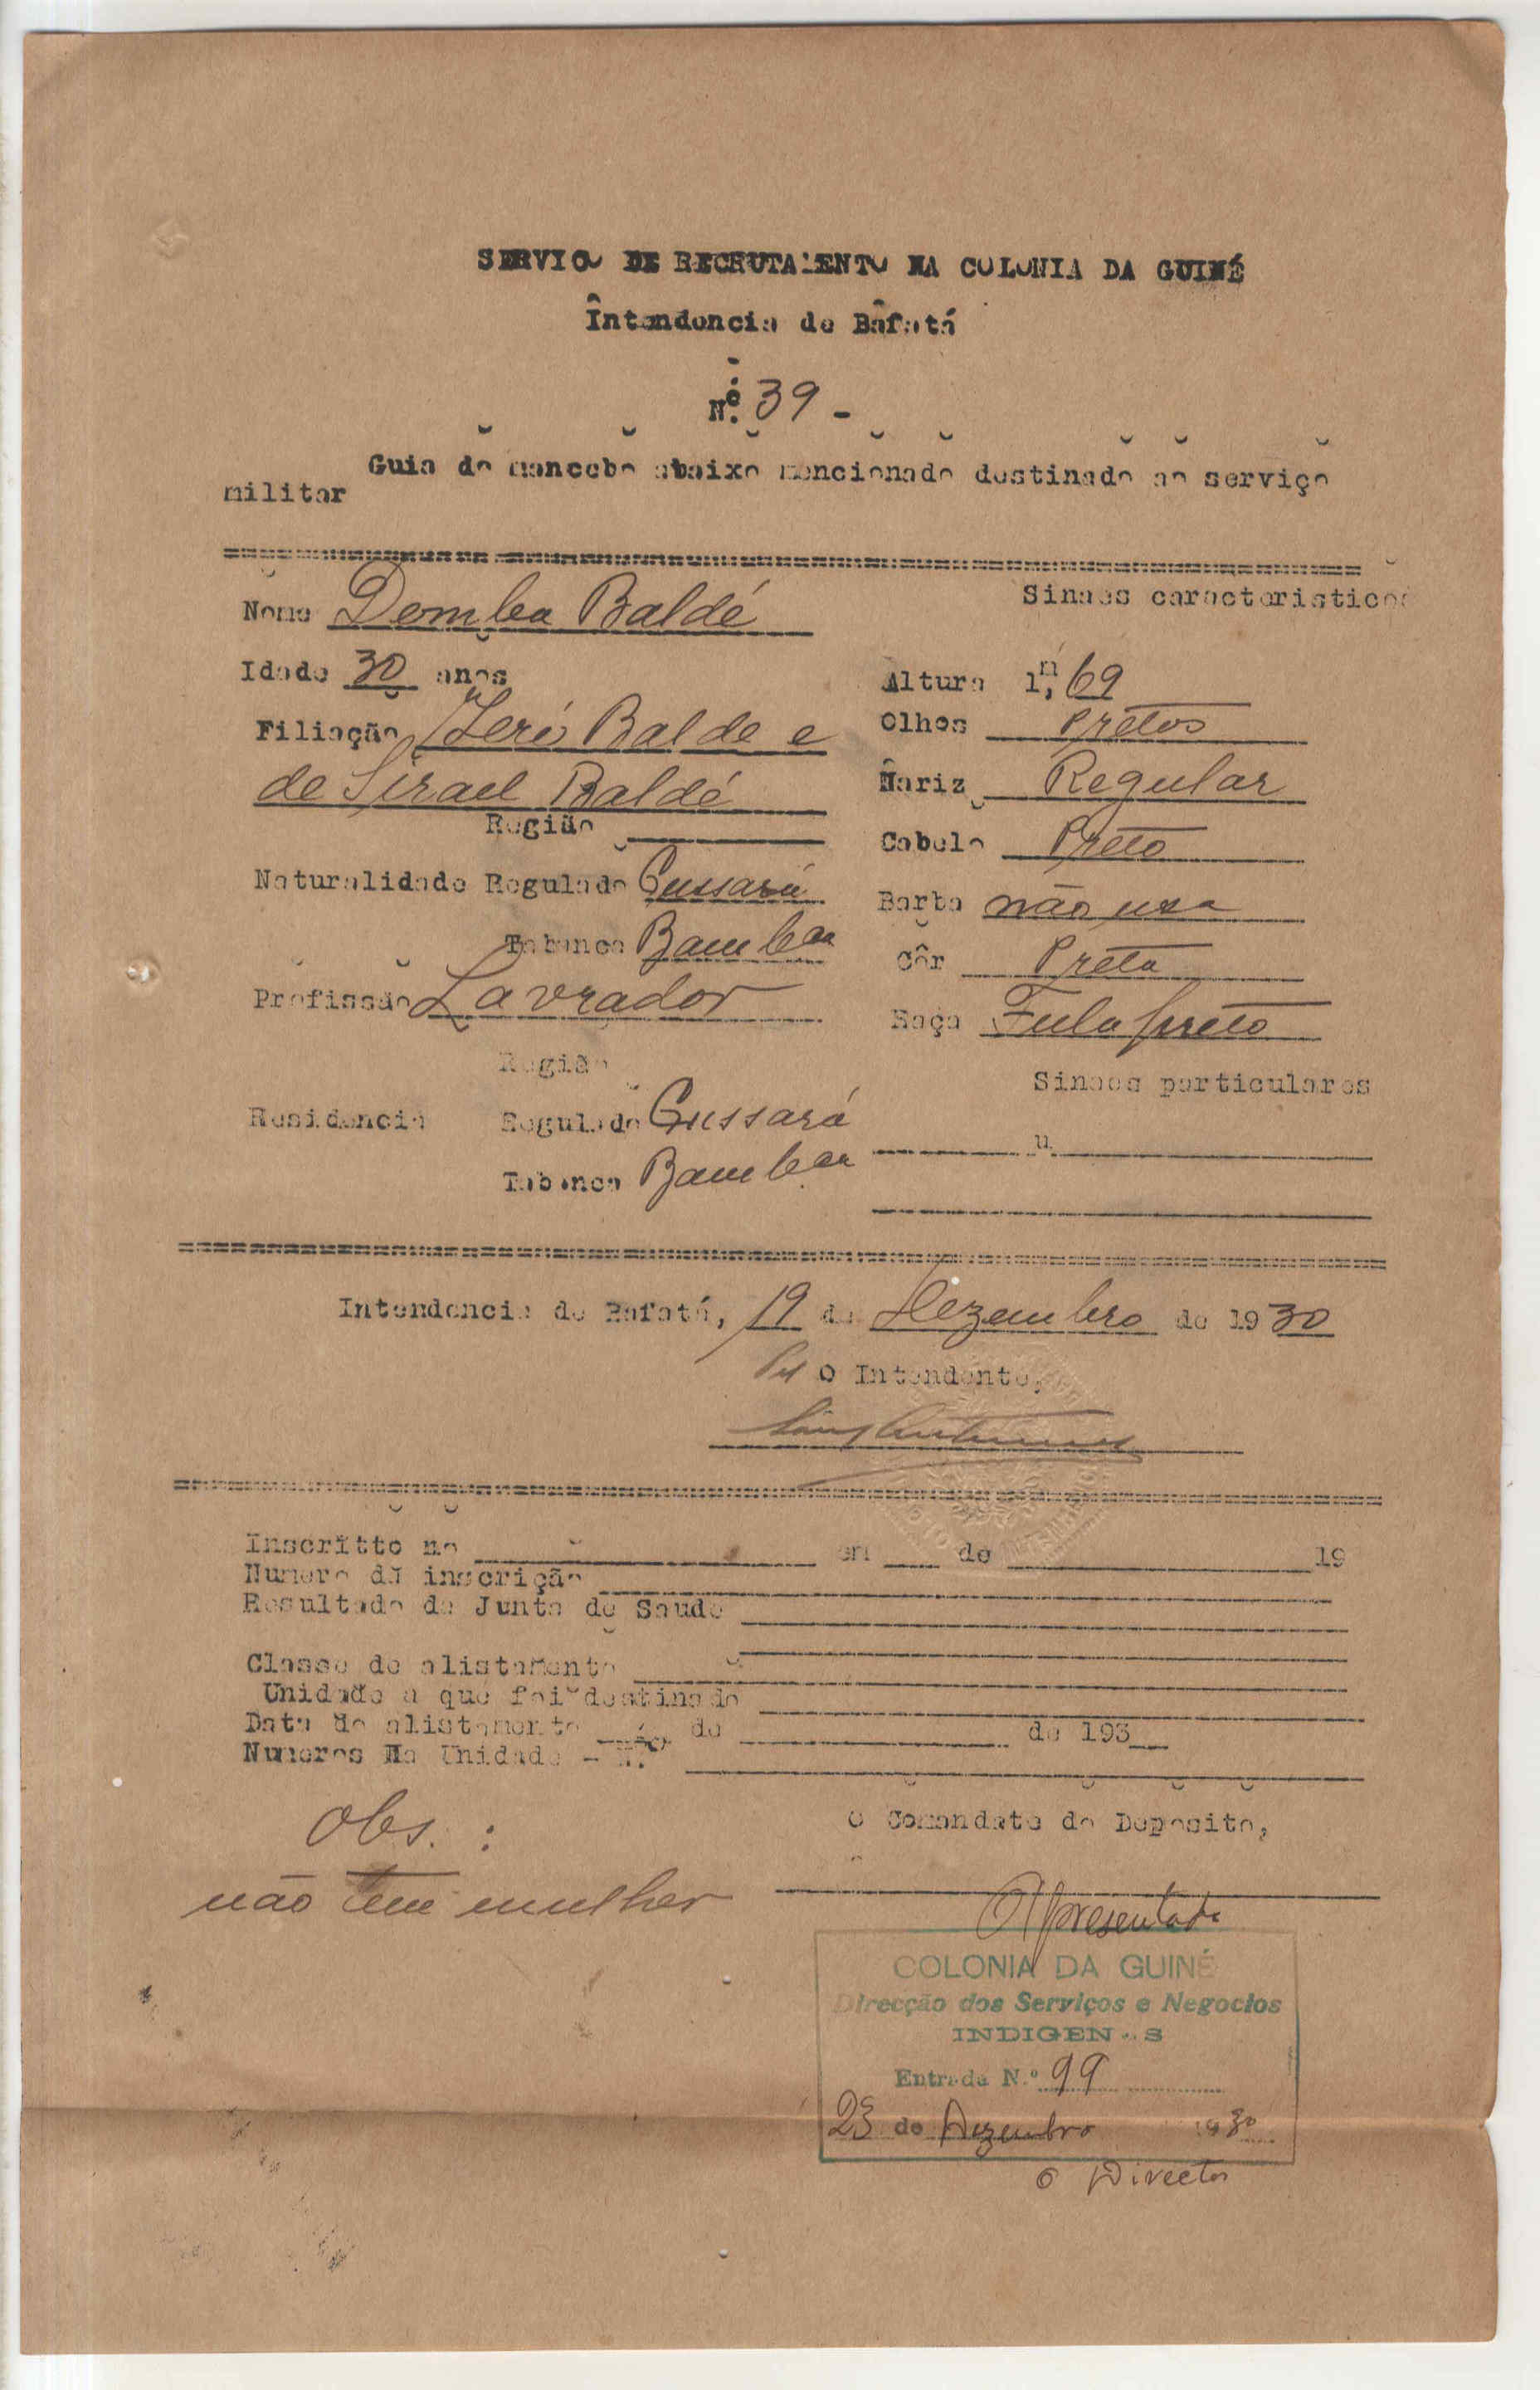 SERVIÇO DE RECRUTAMENTO NA COLONIA DA GUINÉ
Intendencia de Bafatá
Nº. 39 -
Guia do mancebo abaixo mencionado destinado ao serviço
militar
Nome Demba Baldé
Sinaes caracteristicos
Idade 30 anos
Altura 1,m 69
Filiação Seré Balde e
Olhos Pretos
de Sirael Baldé
Nariz Regular
Região
Cabelo Preto
Naturalidade Regulado Gussará
Barba não usa
Tabanca Bambaa
Côr Preta
Profissão Lavrador
Raça Fula preto
Região
Sinaes particulares
Residencia Regulado Gussará
Tabanca Bambaa
Intendencia de Bafatá, 19 de Dezembro de 1930
Pel O Intendente,
Inscritto no em de 19
Numero da inscrição
Resultado da Junta de Saude
Classe do alistamento
Unidade a que foi destinado
Data do alistamento de de 193
Numeros na Unidade - N.º
Obs. :
O Comandate do Deposito,
não tem mulher
Apresentado
COLONIA DA GUINÉ
Direcção dos Serviços e Negocios
INDIGENAS
Entrada N.º 99
23 de Dezembro 1930
O Director